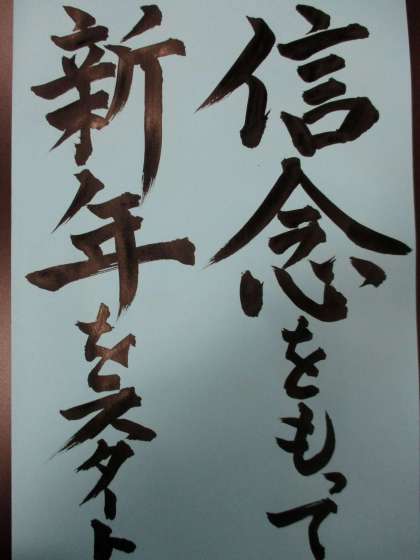 信念をもって
新年をスタート